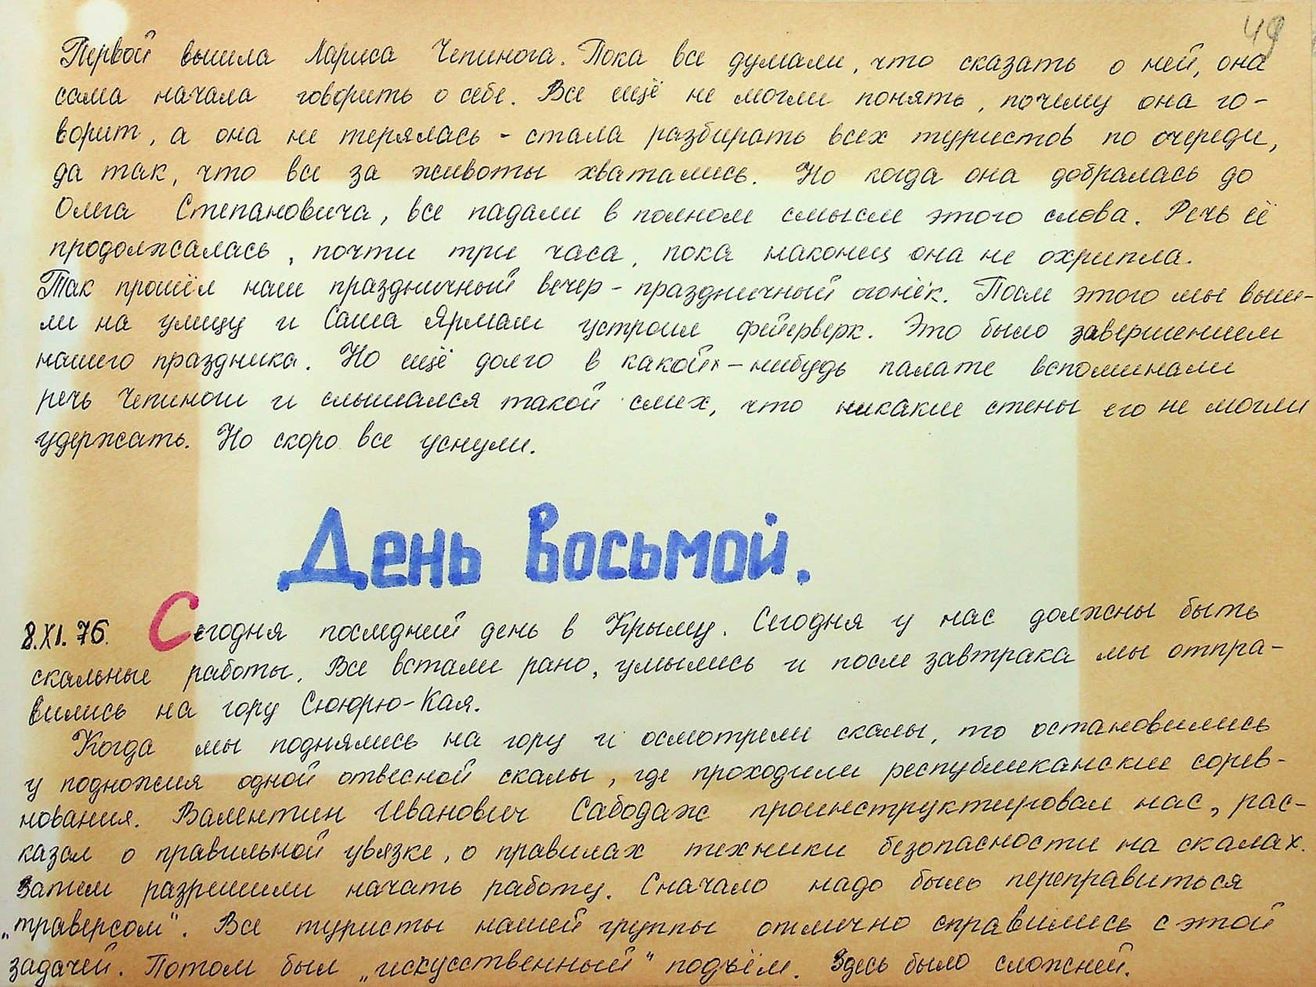 49
Первой вышла Лариса Чепинога. Пока все думали, что сказать о ней, она
сама начала говорить о себе. Все ещё не могли понять, почему она го-
ворит, а она не терялась - стала разбирать всех туристов по очереди,
да так, что все за животы хватались. Но когда она добралась до
Олега Степановича, все падали в полном смысле этого слова. Речь её
продолжалась, почти три часа, пока наконец она не охрипла.
Так прошёл наш праздничный вечер - праздничный огонёк. После этого мы выш-
ли на улицу и Саша Ярмаш устроил фейерверк. Это было завершением
нашего праздника. Но ещё долго в какой-нибудь палате вспоминали
речь Чепиноги и слышался такой смех, что никакие стены его не могли
удержать. Но скоро все уснули.
День восьмой.
8.XI.76. Сегодня последний день в Крыму. Сегодня у нас должны быть
скальные работы. Все встали рано, умылись и после завтрака мы отпра-
вились на гору Сююрю-Кая.
Когда мы поднялись на гору и осмотрели скалы, то остановились
у подножия одной отвесной скалы, где проходили республиканские сорев-
нования. Валентин Иванович Сабодаж проинструктировал нас, рас-
казал о правильной увязке, о правилах техники безопасности на скалах.
Затем разрешили начать работу. Сначало надо было переправиться
„траверсом". Все туристы нашей группы отлично справились с этой
задачей. Потом был „искусственный" подъём. Здесь было сложней.